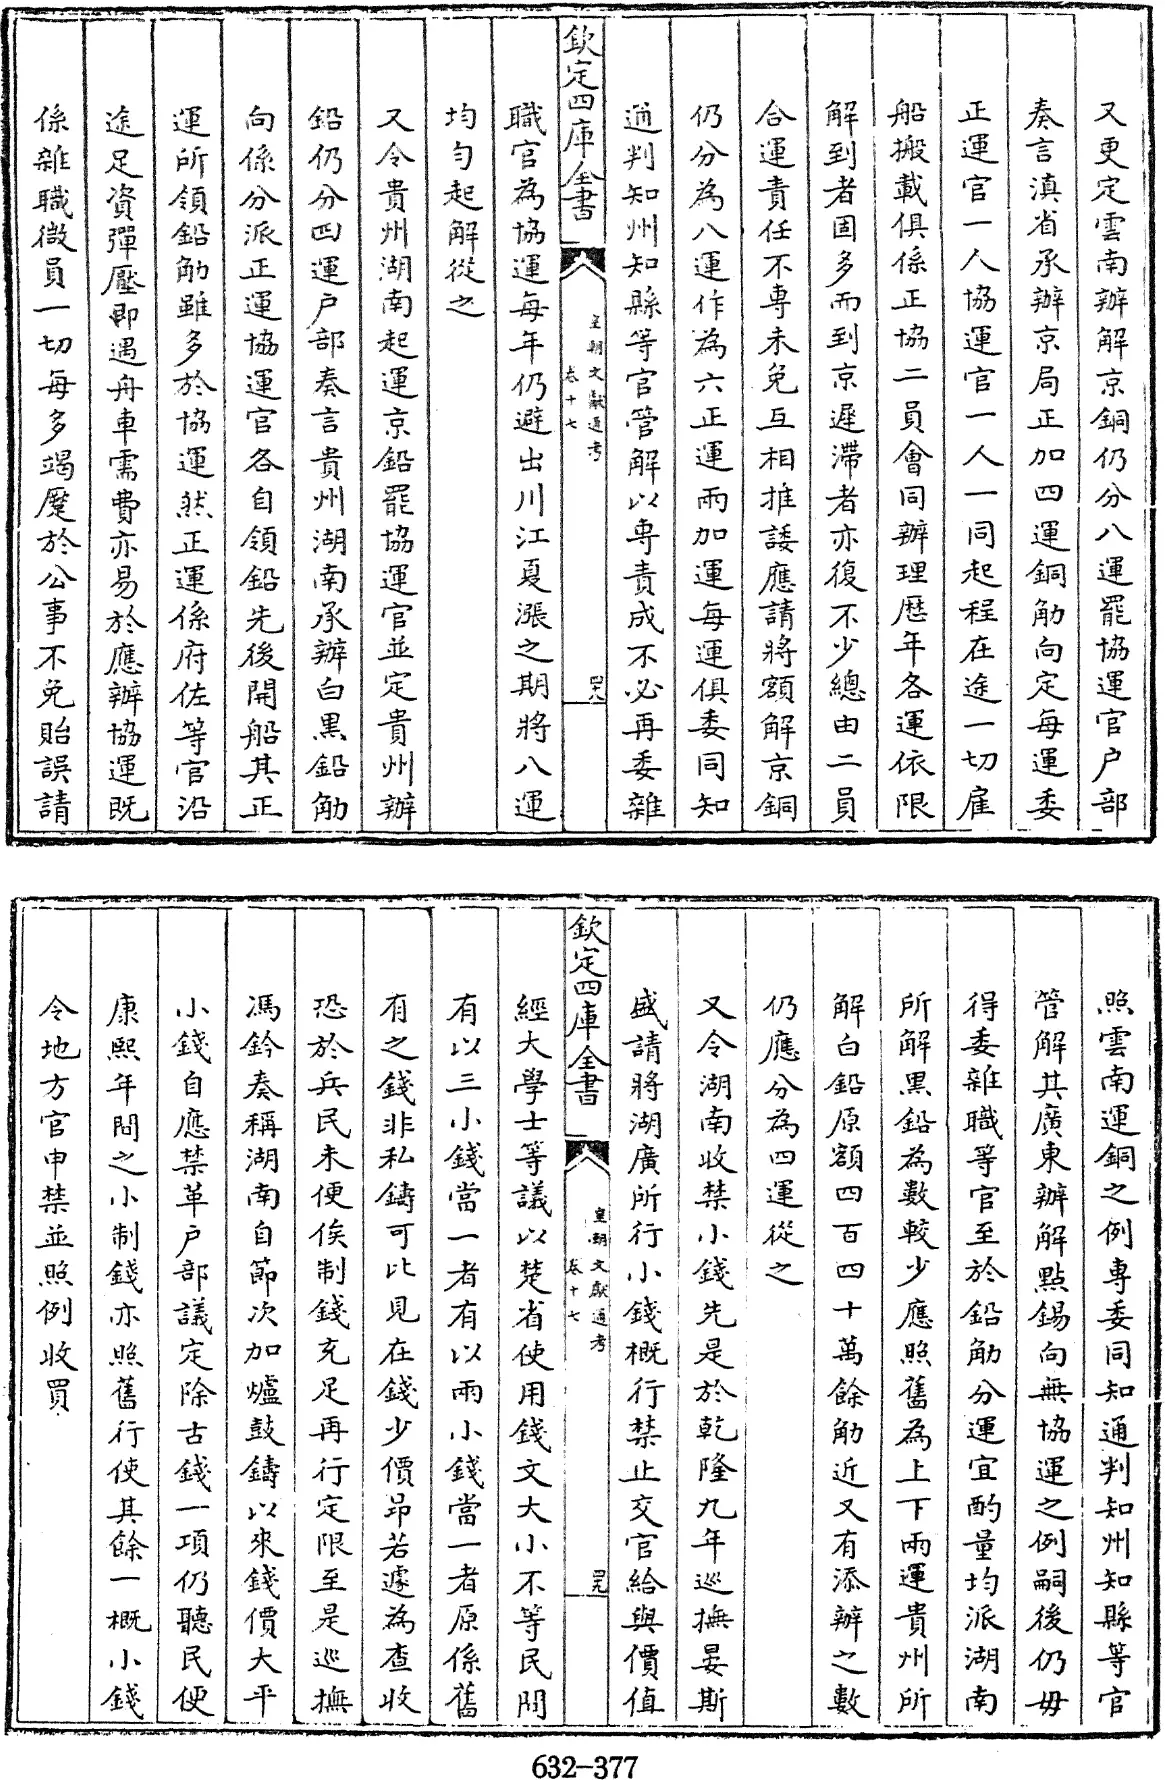 又更定雲南辦解京銅仍分八運罷協運官户部
奏言滇省承辦京局正加四運銅觔向定每運委
正運官一人協運官一人一同起程在途一切雇
船搬載俱係正協二員會同辦理歴年各運依限
解到者固多而到京遲滯者亦復不少總由二員
合運責任不專未免互相推諉應請將額解京銅
仍分為八運作為六正運兩加運每運俱委同知
通判知州知縣等官管解以専責成不必再委雜
欽定四庫全書
皇朝文獻通考
卷十七
四八
職官為協運每年仍避出川江夏漲之期將八運
均勻起解從之
又令貴州湖南起運京鉛罷協運官並定貴州辦
鉛仍分四運户部奏言貴州湖南承辦白黒鉛觔
向係分派正運協運官各自領鉛先後開船其正
運所領鉛觔雖多於協運然正運係府佐等官沿
途足資彈壓即遇舟車需費亦易於應辦協運既
係雜職微員一切每多竭蹷於公事不免貽誤請
照雲南運銅之例専委同知通判知州知縣等官
管解其廣東辦解點錫向無協運之例嗣後仍毋
得委雜職等官至於鉛觔分運宜酌量均派湖南
所解黒鉛為數較少應照舊為上下兩運貴州所
解白鉛原額四百四十萬餘觔近又有添辦之數
仍應分為四運從之
又令湖南收禁小錢先是於乾隆九年巡撫晏斯
盛請將湖廣所行小錢概行禁止交官給與價值
欽定四庫全書
皇朝文獻通考
卷十七
四九
經大學士等議以楚省使用錢文大小不等民間
有以三小錢當一者有以兩小錢當一者原係舊
有之錢非私鑄可比見在錢少價昻若遽為查收
恐於兵民未便俟制錢充足再行定限至是巡撫
馮鈐奏稱湖南自節次加爐鼓鑄以來錢價大平
小錢自應禁革户部議定除古錢一項仍聽民便
康熙年間之小制錢亦照舊行使其餘一概小錢
令地方官申禁並照例收買
632-377